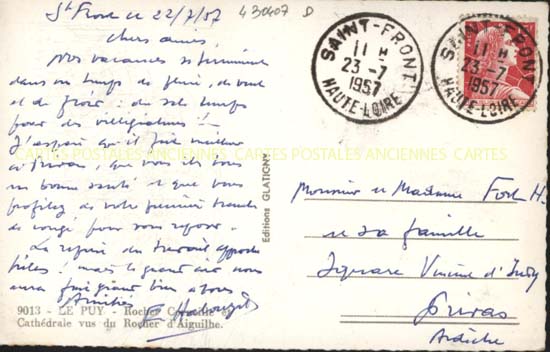 St Front le 22/7/57
430407 D
chers amis,
Nos vacances se terminent
dans un temps de pluie, de vent
et de froid : du sale temps
pour des villégiatures!
J'espère qu'il fait meilleur
à Privas, que vous êtes tous
en bonne santé et que vous
profitez de votre première tranche
de congé pour vous reposer.
La reprise du travail approche
hélas! mais le grand air nous
aura fait grand bien à tous
Amitiés
9013 - LE PUY - Rocher Corneille et
Cathédrale vus du Rocher d'Aiguilhe.
Editions GLATIGNY
SAINT-FRONT
11 H
23 -7
1957
HAUTE-LOIRE
SAINT-FRONT
11 H
23 -7
1957
HAUTE-LOIRE
CARTES POSTALES ANCIENNES CARTES POSTALES ANCIENNES CARTES
Monsieur et Madame H.
et sa famille
Square Vincent d'Indy
Privas
Ardèche